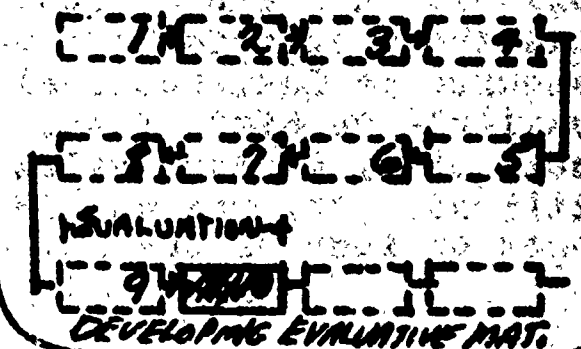 1 2 3 4
8 7 6 5
EVALUATION
9
DEVELOPING EVALUATIVE MAT.